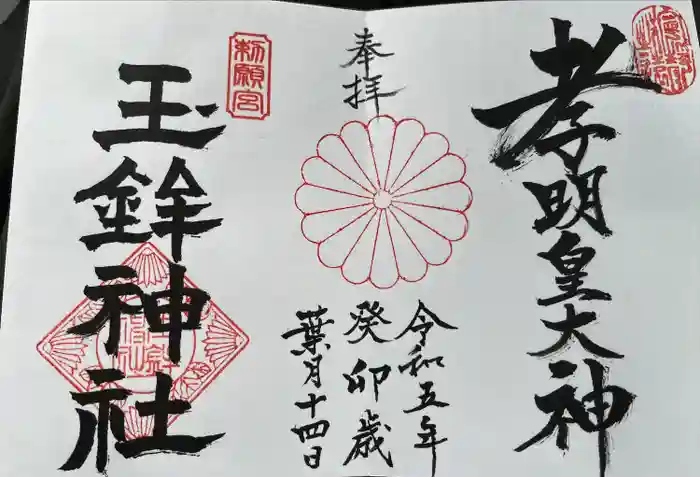 孝明皇大神
奉拝
令和五年
癸卯歳
葉月十四日
勅願宮
玉鉾神社